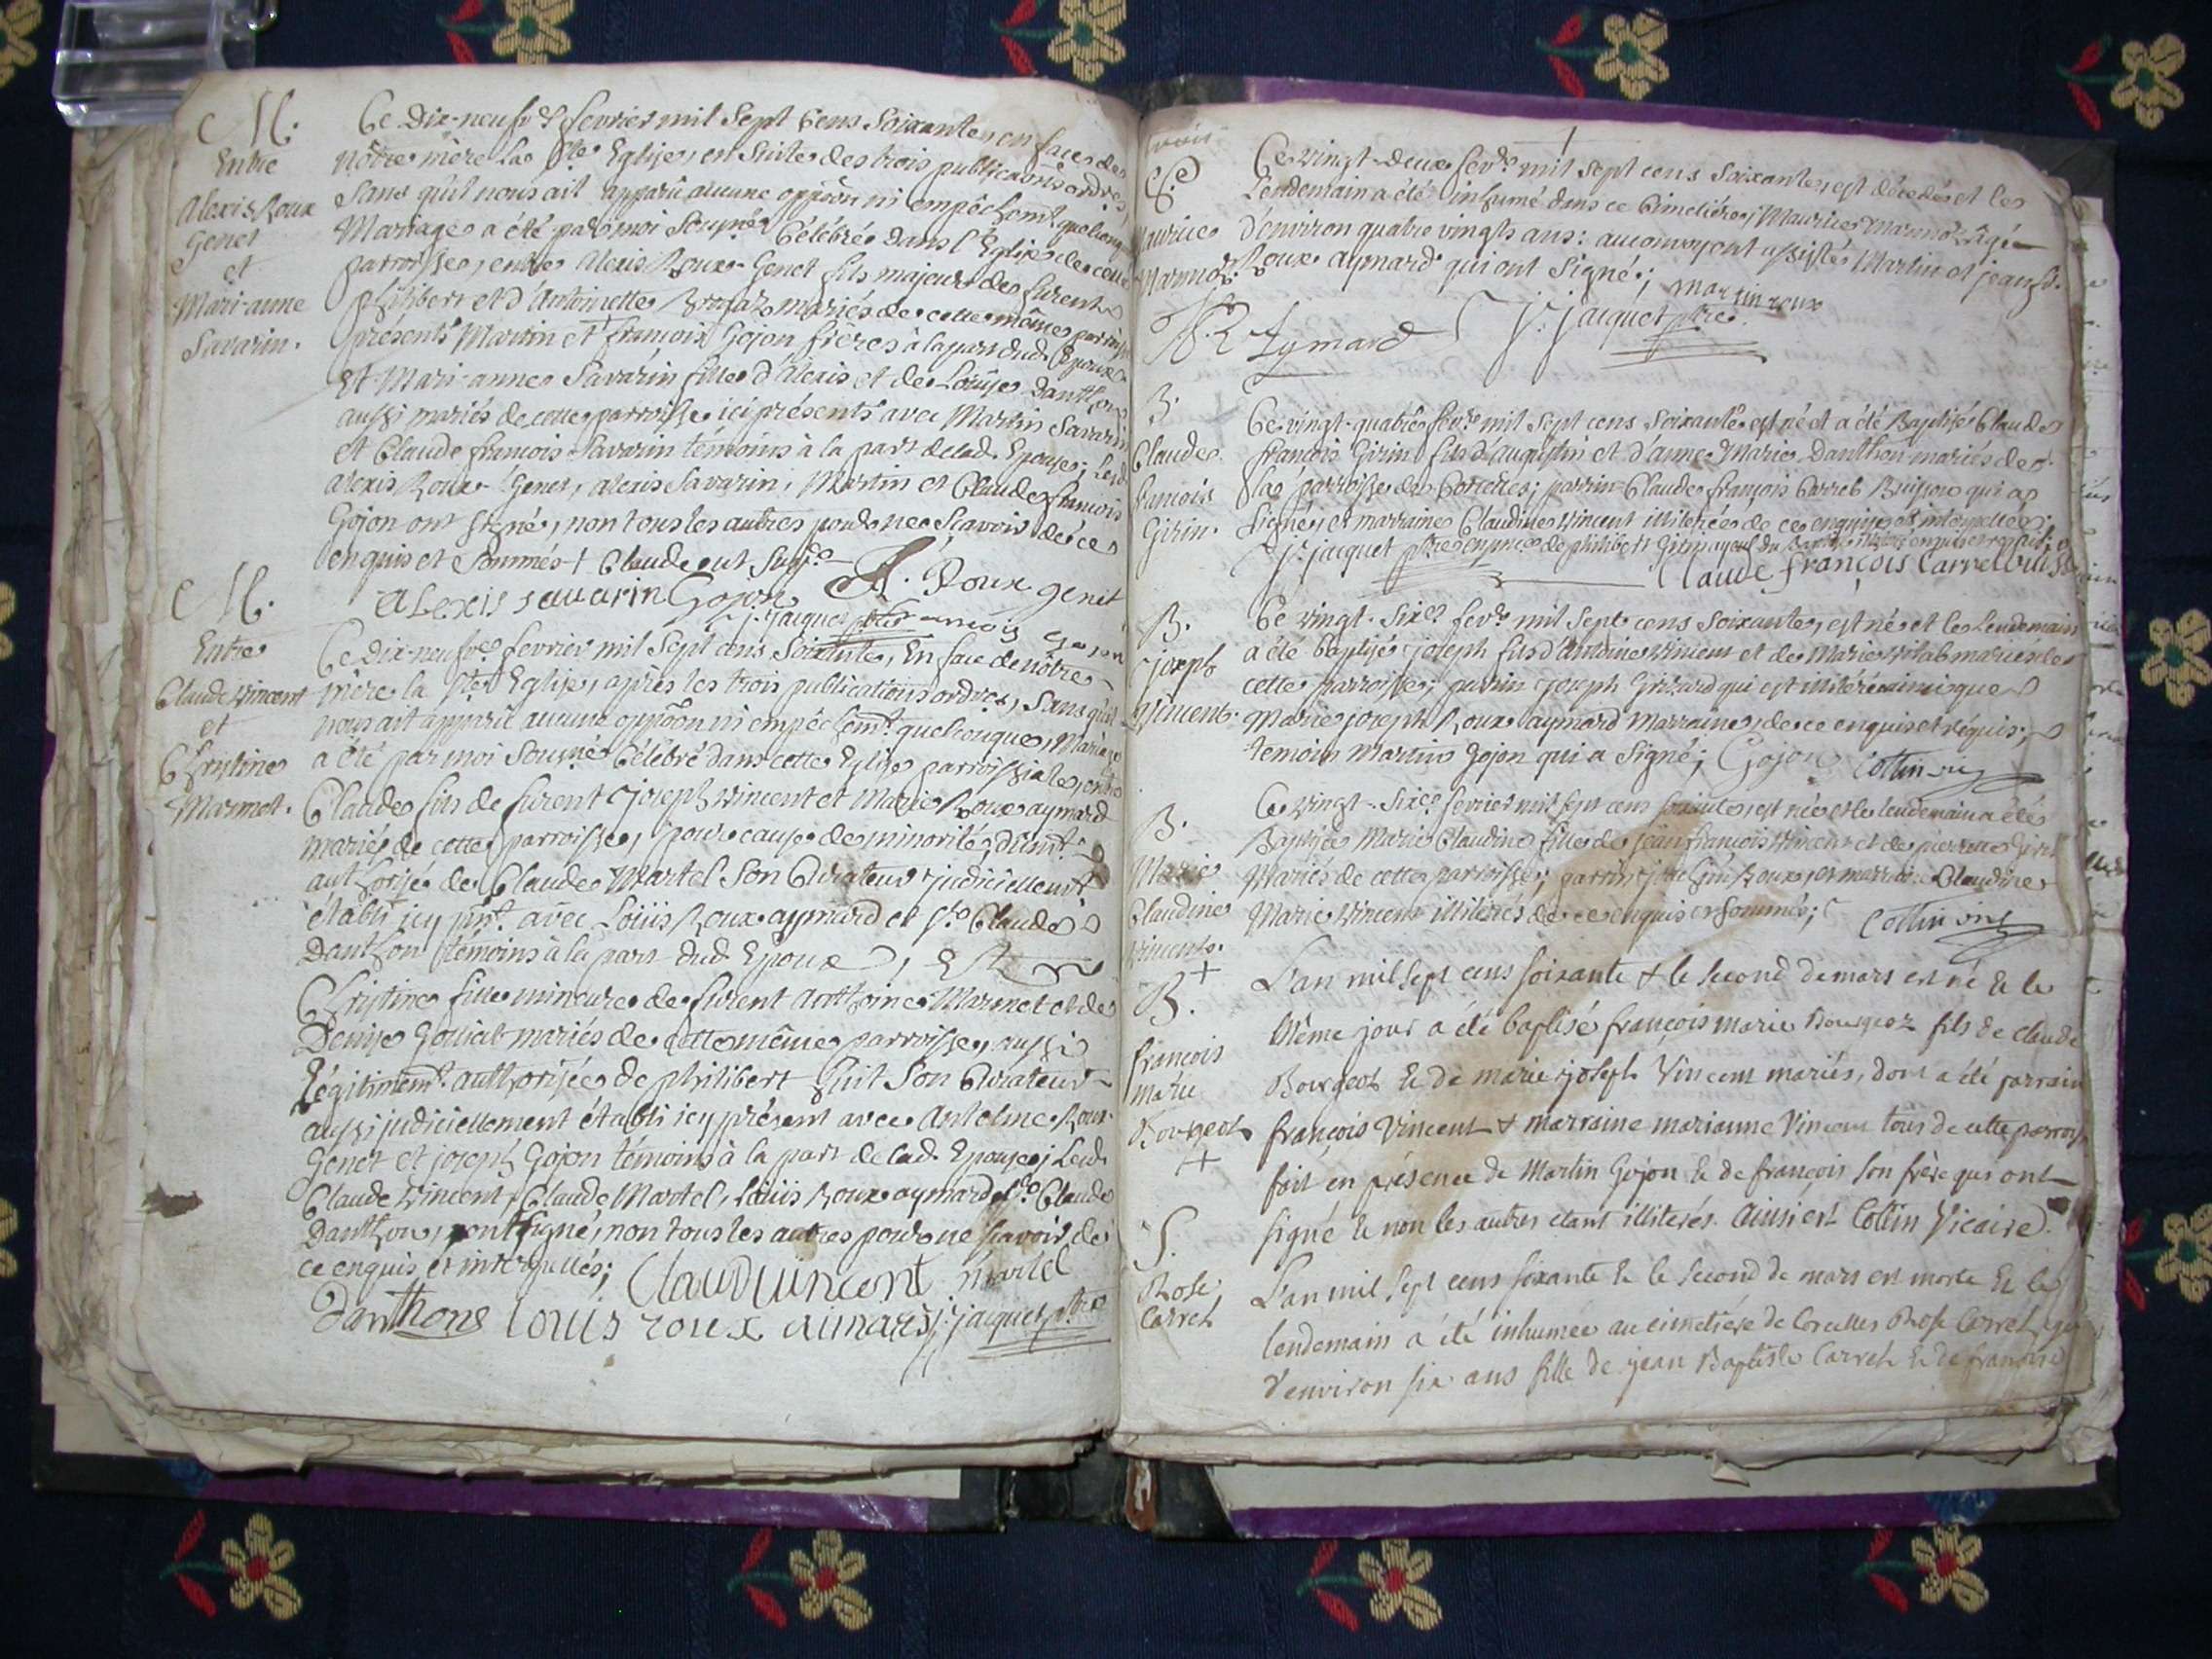 M.
Entre
Alexis Roux
Genet
et
Mari-anne
Savarin.
Ce Dix-neufv.e fevrier mil Sept Cens Soixante, en face de
nôtre mère La Ste Eglise, en Suite des trois publicaôns ordres,
Sans qu'il nous ait apparu aucune oppôôn ni empêchemt quelconque
Mariage a été par moi Sousné Célébré dans l'Eglise de cette
parroisse, entre Alexis Roux-Genet fils majeur de furent
philibert et d'Antoinette mariés de cette même parroisse
présents Martin et françois Gojon frères à la part dud. Epoux
Et Mari-anne Savarin fille d'Alexis et de Loüise Danthon
aussi mariés de cette parroisse ici présents avec Martin Savarin
et Claude françois Savarin témoins à la part de lad. Epouse; lesd.
Alexis Roux-Genet, Alexis Savarin, Martin et Claude françois
Gojon ont signé, non tous les autres pour ne Scavoir de ce
enquis et Sommés
ALexis savarin Gojon A. Roux genet
j. jacquet ptre francois gojon
M.
Entre
Claude Vincent
et
Christine
Marmet.
Ce Dix-neufv.e fevrier mil Sept cens Soixante, En face de nôtre
mère la Ste Eglise, après les trois publications ordres, Sans qu'il
nous ait apparu aucune oppôôn ni empêchemt quelconque, Mariage
a été par moi Sousné Célébré dans cette Eglise parroissiale, entre
Claude fils de furent Joseph Vincent et Marie Roux aymard
mariés de cette parroisse, pour cause de minorité, dûmt
authorisé de Claude Martel Son Curateur judiciellemt
établi icy pnt avec Loüis Roux aymard et Claude
Danthon témoins à la part dud. Epoux, Et
Christine fille mineure de furent Anthoine Marmet et de
Denise Goujet mariés de cette même parroisse, aussi
légitimemt authorisée de philibert Guit Son Curateur
aussi judiciellement établi icy présent avec Antelme Roux
Genet et joseph Gojon témoins à la part de lad. Epouse; Lesd.
Claude Vincent, Claude Martel, Loüis Roux aymard, Claude
Danthon, ont signé, non tous les autres pour ne scavoir, de
ce enquis et interpellés;
Claud vincent martel
Danthons louis roux aimard j. jacquet ptre
Maurice
Marmet.
Ce vingt-deux fevr. mil sept cens soixante, est décedé et le
lendemain a été inhumé dans ce Cimetière, Maurice Marmet âgé
d'environ quatre vingts ans: au convoy ont assisté Martin et jean
Roux aymard qui ont Signé; martin roux
Aymard j. jacquet ptre
B.
Claude
françois
Girin.
Ce vingt-quatre fevr. mil sept cens soixante est né et a été Baptisé Claude
françois Girin fils d'augustin et d'anne Marie Danthon mariés de
la parroisse de Corcelles; parrin Claude françois Carret Buisson qui a
signé, et marraine Claudine Vincent illiterée de ce enquise et interpellée;
j. jacquet ptre en pnce de philibert Girin ayeul du
Claude françois Carret buisson
B.
joseph
Vincent.
Ce vingt-sixe fevr. mil Sept cens soixante, est né et le lendemain
a été baptisé joseph fils d'Antoine Vincent et de Marie mariés de
cette parroisse; parrin joseph Grizard qui est illitéré ainsi que
Marie joseph Roux aymard Marraine, de ce enquis et réquis;
témoin Martin Gojon qui a Signé; Gojon Collin vic
B.
Marie
Claudine
Vincent.
Ce vingt-sixe fevrier mil sept cens soixante, est née et le lendemain a été
Baptisée Marie Claudine fille de jean françois Vincent et de pierrette
Mariés de cette parroisse; parrin Roux, et marraine Claudine
Marie Vincent illiterés de ce enquis et sommés; Collin vic
+
B.
françois
marie
Bourgeot
+
L'an mil sept cens soixante & le second de mars est né & le
même jour a été baptisé françois marie Bourgeoz fils de claude
Bourgeot & de marie joseph Vincent mariés, dont a été parrain
françois Vincent & marraine marianne Vincent tous de cette parroisse
fait en présence de Martin Gojon & de françois son frère qui ont
signé & non les autres étant illiterés. Ainsi est Collin Vicaire.
S.
Rose
Carret
L'an mil sept cens soixante & le second de mars est morte & le
lendemain a été inhumée au cimetière de Corcelles Rose Carret agée
d'environ six ans fille de jean Baptiste Carret & de françoise